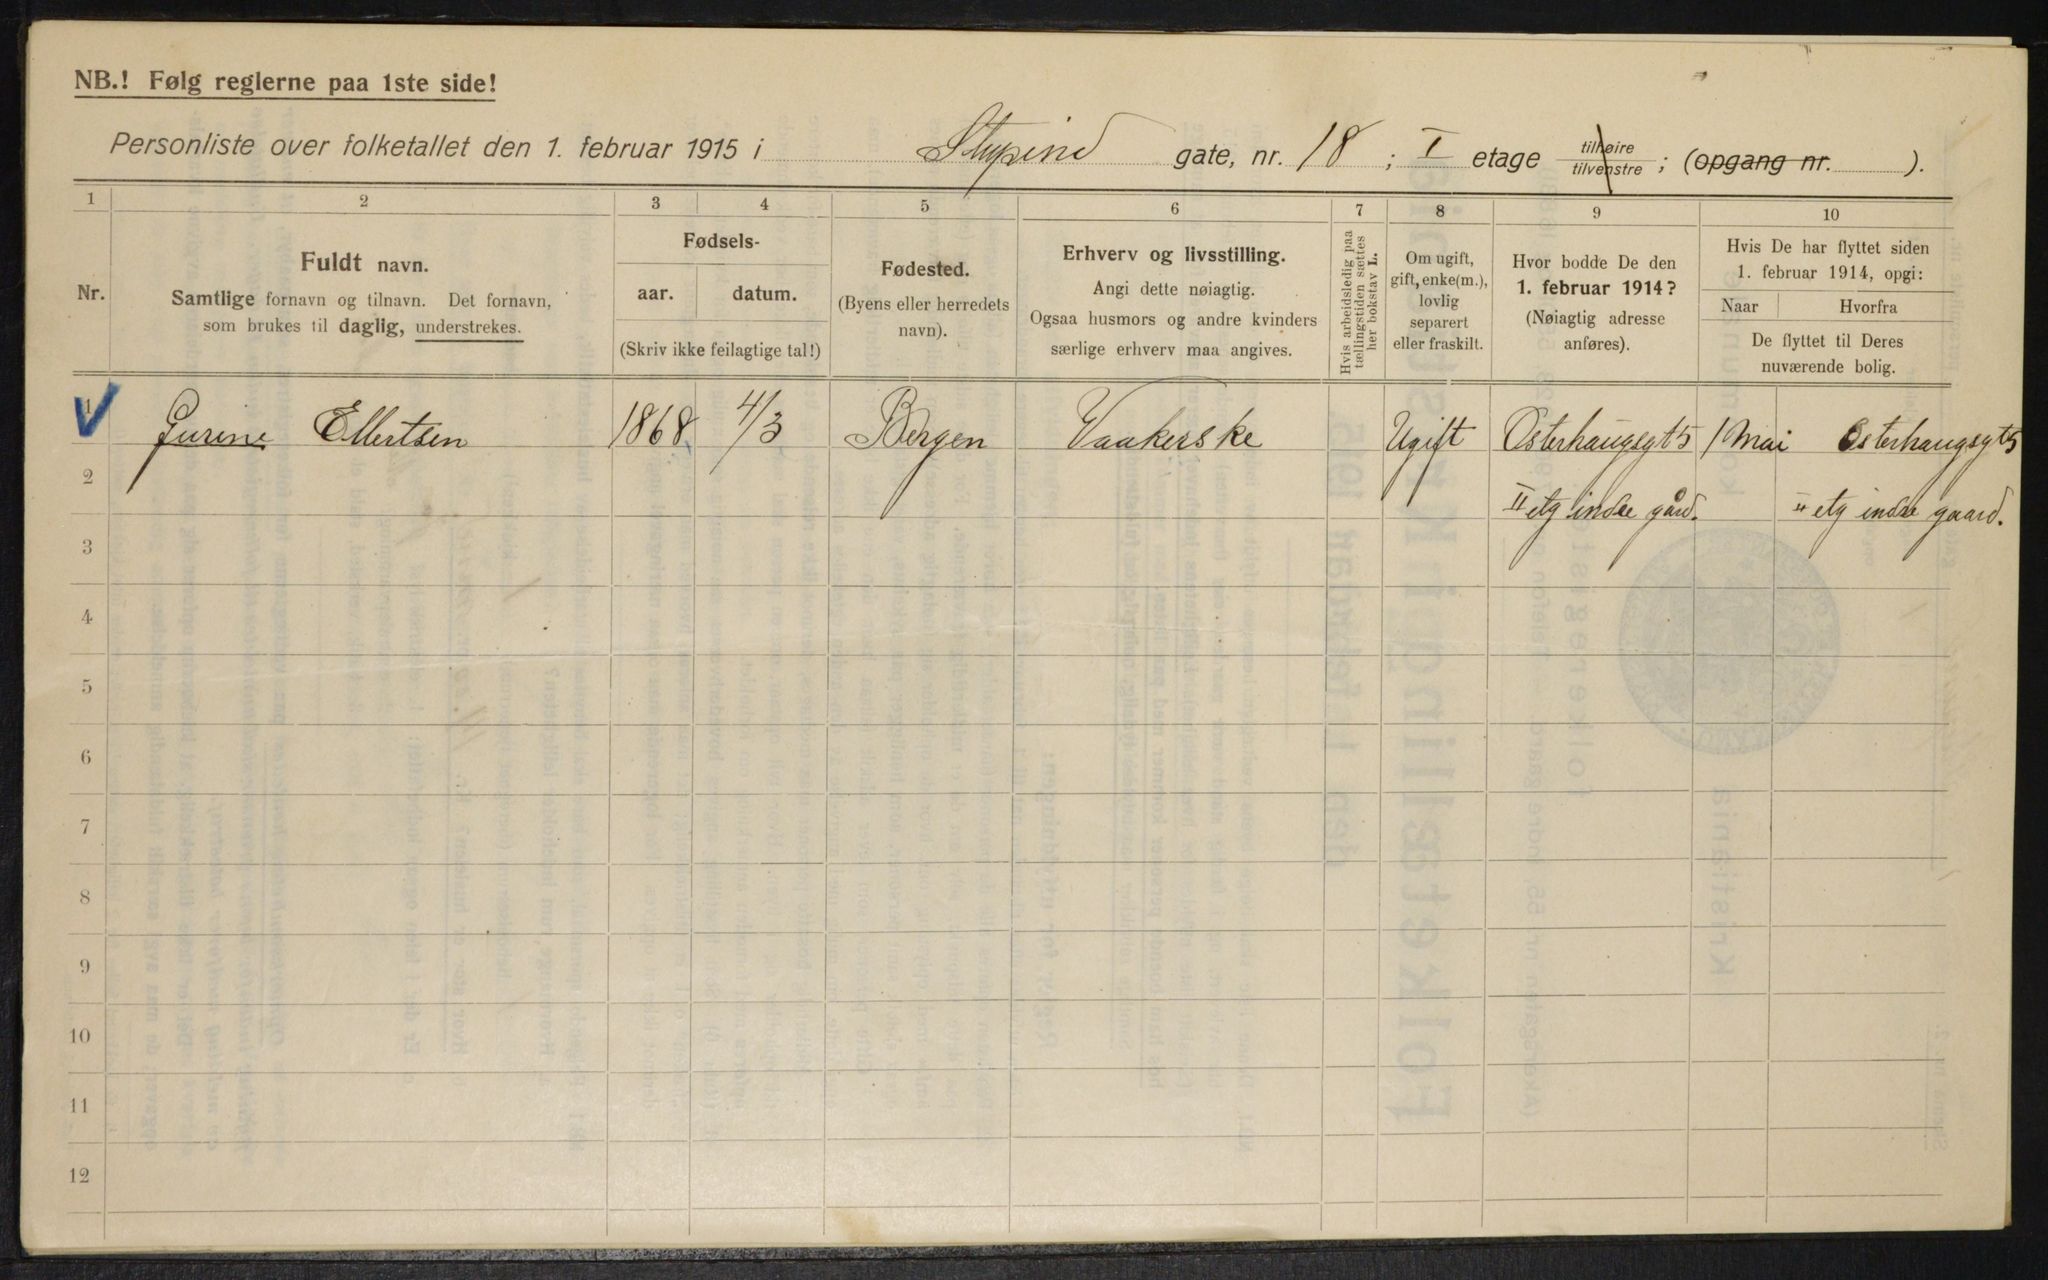 NB.! Følg reglerne paa 1ste side!
Personliste over folketallet den 1. februar 1915 i Stupind gate, nr. 18 ; I etage tilhøire tilvenstre ; (opgang nr. ).
1 2 3 4 5 6 7 8 9 10
Nr.
Fuldt navn.
Samtlige fornavn og tilnavn. Det fornavn,
som brukes til daglig, understrekes.
Fødsels-
aar. datum.
(Skriv ikke feilagtige tal!)
Fødested.
(Byens eller herredets
navn).
Erhverv og livsstilling.
Angi dette nøiagtig.
Ogsaa husmors og andre kvinders
særlige erhverv maa angives.
Hvis arbeidsledig paa
tællingstiden sættes
her bokstav L.
Om ugift,
gift, enke(m.),
lovlig
separert
eller fraskilt.
Hvor bodde De den
1. februar 1914?
(Nøiagtig adresse
anføres).
Hvis De har flyttet siden
1. februar 1914, opgi:
Naar Hvorfra
De flyttet til Deres
nuværende bolig.
1 Gurine Ellertsen 1868 4/3 Bergen Vaakerske Ugift Osterhaugsgt 5 1 Mai Osterhaugsgt 5
2 II etg indre gård. II etg indre gaard.
3
4
5
6
7
8
9
10
11
12